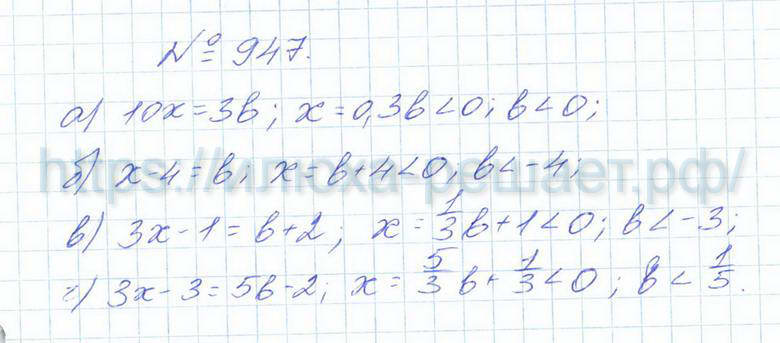 № 947.
а) 10x = 3b; x = 0,3b < 0; b < 0;
б) x - 4 = b; x = b + 4 < 0; b < -4;
https://илюха-решает.рф/
в) 3x - 1 = b + 2; x = 1/3 b + 1 < 0; b < -3;
г) 3x - 3 = 5b - 2; x = 5/3 b + 1/3 < 0; b < 1/5.